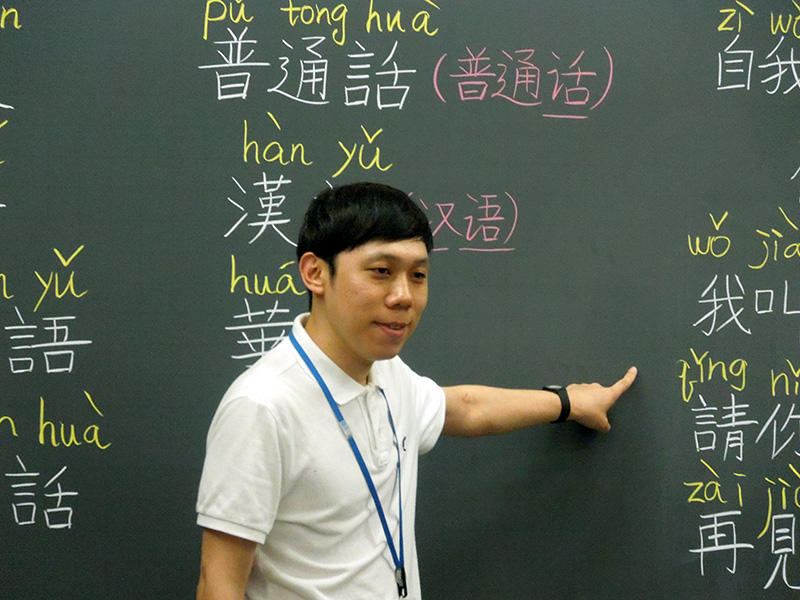 yǔ
語
huà
話
pǔ tong huà
普通話(普通话)
hàn yǔ
漢 汉语)
huá
華
zì wǒ
自我
wǒ jià
我叫
qǐng nǐ
請你
zài ji
再見